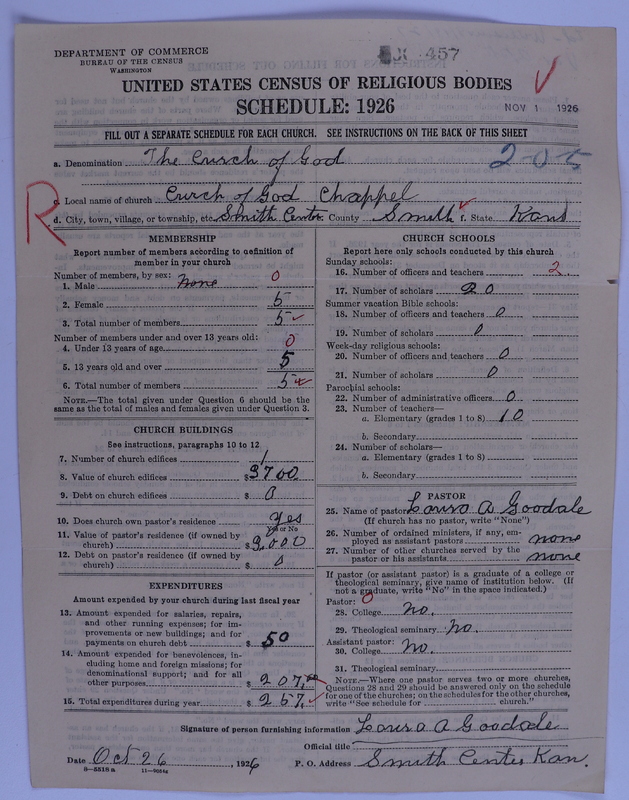 DEPARTMENT OF COMMERCE
BUREAU OF THE CENSUS
WASHINGTON
457
UNITED STATES CENSUS OF RELIGIOUS BODIES
SCHEDULE: 1926
NOV 1 1926
FILL OUT A SEPARATE SCHEDULE FOR EACH CHURCH. SEE INSTRUCTIONS ON THE BACK OF THIS SHEET
a. Denomination The Curch of God
2-0-5
R
c. Local name of church Curch of God Chappel
d. City, town, village, or township, etc. Smith Center County Smith f. State Kans
MEMBERSHIP
Report number of members according to definition of
member in your church
Number of members, by sex:
1. Male none 0
2. Female 5
3. Total number of members 5
Number of members under and over 13 years old:
4. Under 13 years of age 0
5. 13 years old and over 5
6. Total number of members 5
NOTE.—The total given under Question 6 should be
same as the total of males and females given under Question 3.
CHURCH BUILDINGS
See instructions, paragraphs 10 to 12
7. Number of church edifices 1
8. Value of church edifices $ 3700
9. Debt on church edifices $ 0
10. Does church own pastor's residence yes
Yes or No
11. Value of pastor's residence (if owned by
church) $ 3,000
12. Debt on pastor's residence (if owned by
church) $ 0
EXPENDITURES
Amount expended by your church during last fiscal year
13. Amount expended for salaries, repairs,
and other running expenses; for im-
provements or new buildings; and for
payments on church debt $ 50
14. Amount expended for benevolences, in-
cluding home and foreign missions; for
denominational support; and for all
other purposes $ 207.00
15. Total expenditures during year $ 257.
CHURCH SCHOOLS
Report here only schools conducted by this church
Sunday schools:
16. Number of officers and teachers 2
17. Number of scholars 20
Summer vacation Bible schools:
18. Number of officers and teachers 0
19. Number of scholars 0
Week-day religious schools:
20. Number of officers and teachers 0
21. Number of scholars 0
Parochial schools:
22. Number of administrative officers 0
23. Number of teachers—
a. Elementary (grades 1 to 8) 10
b. Secondary
24. Number of scholars—
a. Elementary (grades 1 to 8)
b. Secondary
PASTOR
25. Name of pastor Laura A Goodale
(If church has no pastor, write "None")
26. Number of ordained ministers, if any, em-
ployed as assistant pastors none
27. Number of other churches served by the
pastor or his assistants none
If pastor (or assistant pastor) is a graduate of a college or
theological seminary, give name of institution below. (If
not a graduate, write "No" in the space indicated.)
Pastor: 0
28. College no.
29. Theological seminary no.
Assistant pastor:
30. College no.
31. Theological seminary
NOTE.—Where one pastor serves two or more churches,
Questions 28 and 29 should be answered only on the schedule
for one of the churches; on the schedules for the other churches,
write "See schedule for church."
Signature of person furnishing information Laura A Goodale
Official title
Date Oct 26, 1926 P. O. Address Smith Center Kan.
8-5518a 11-9054a